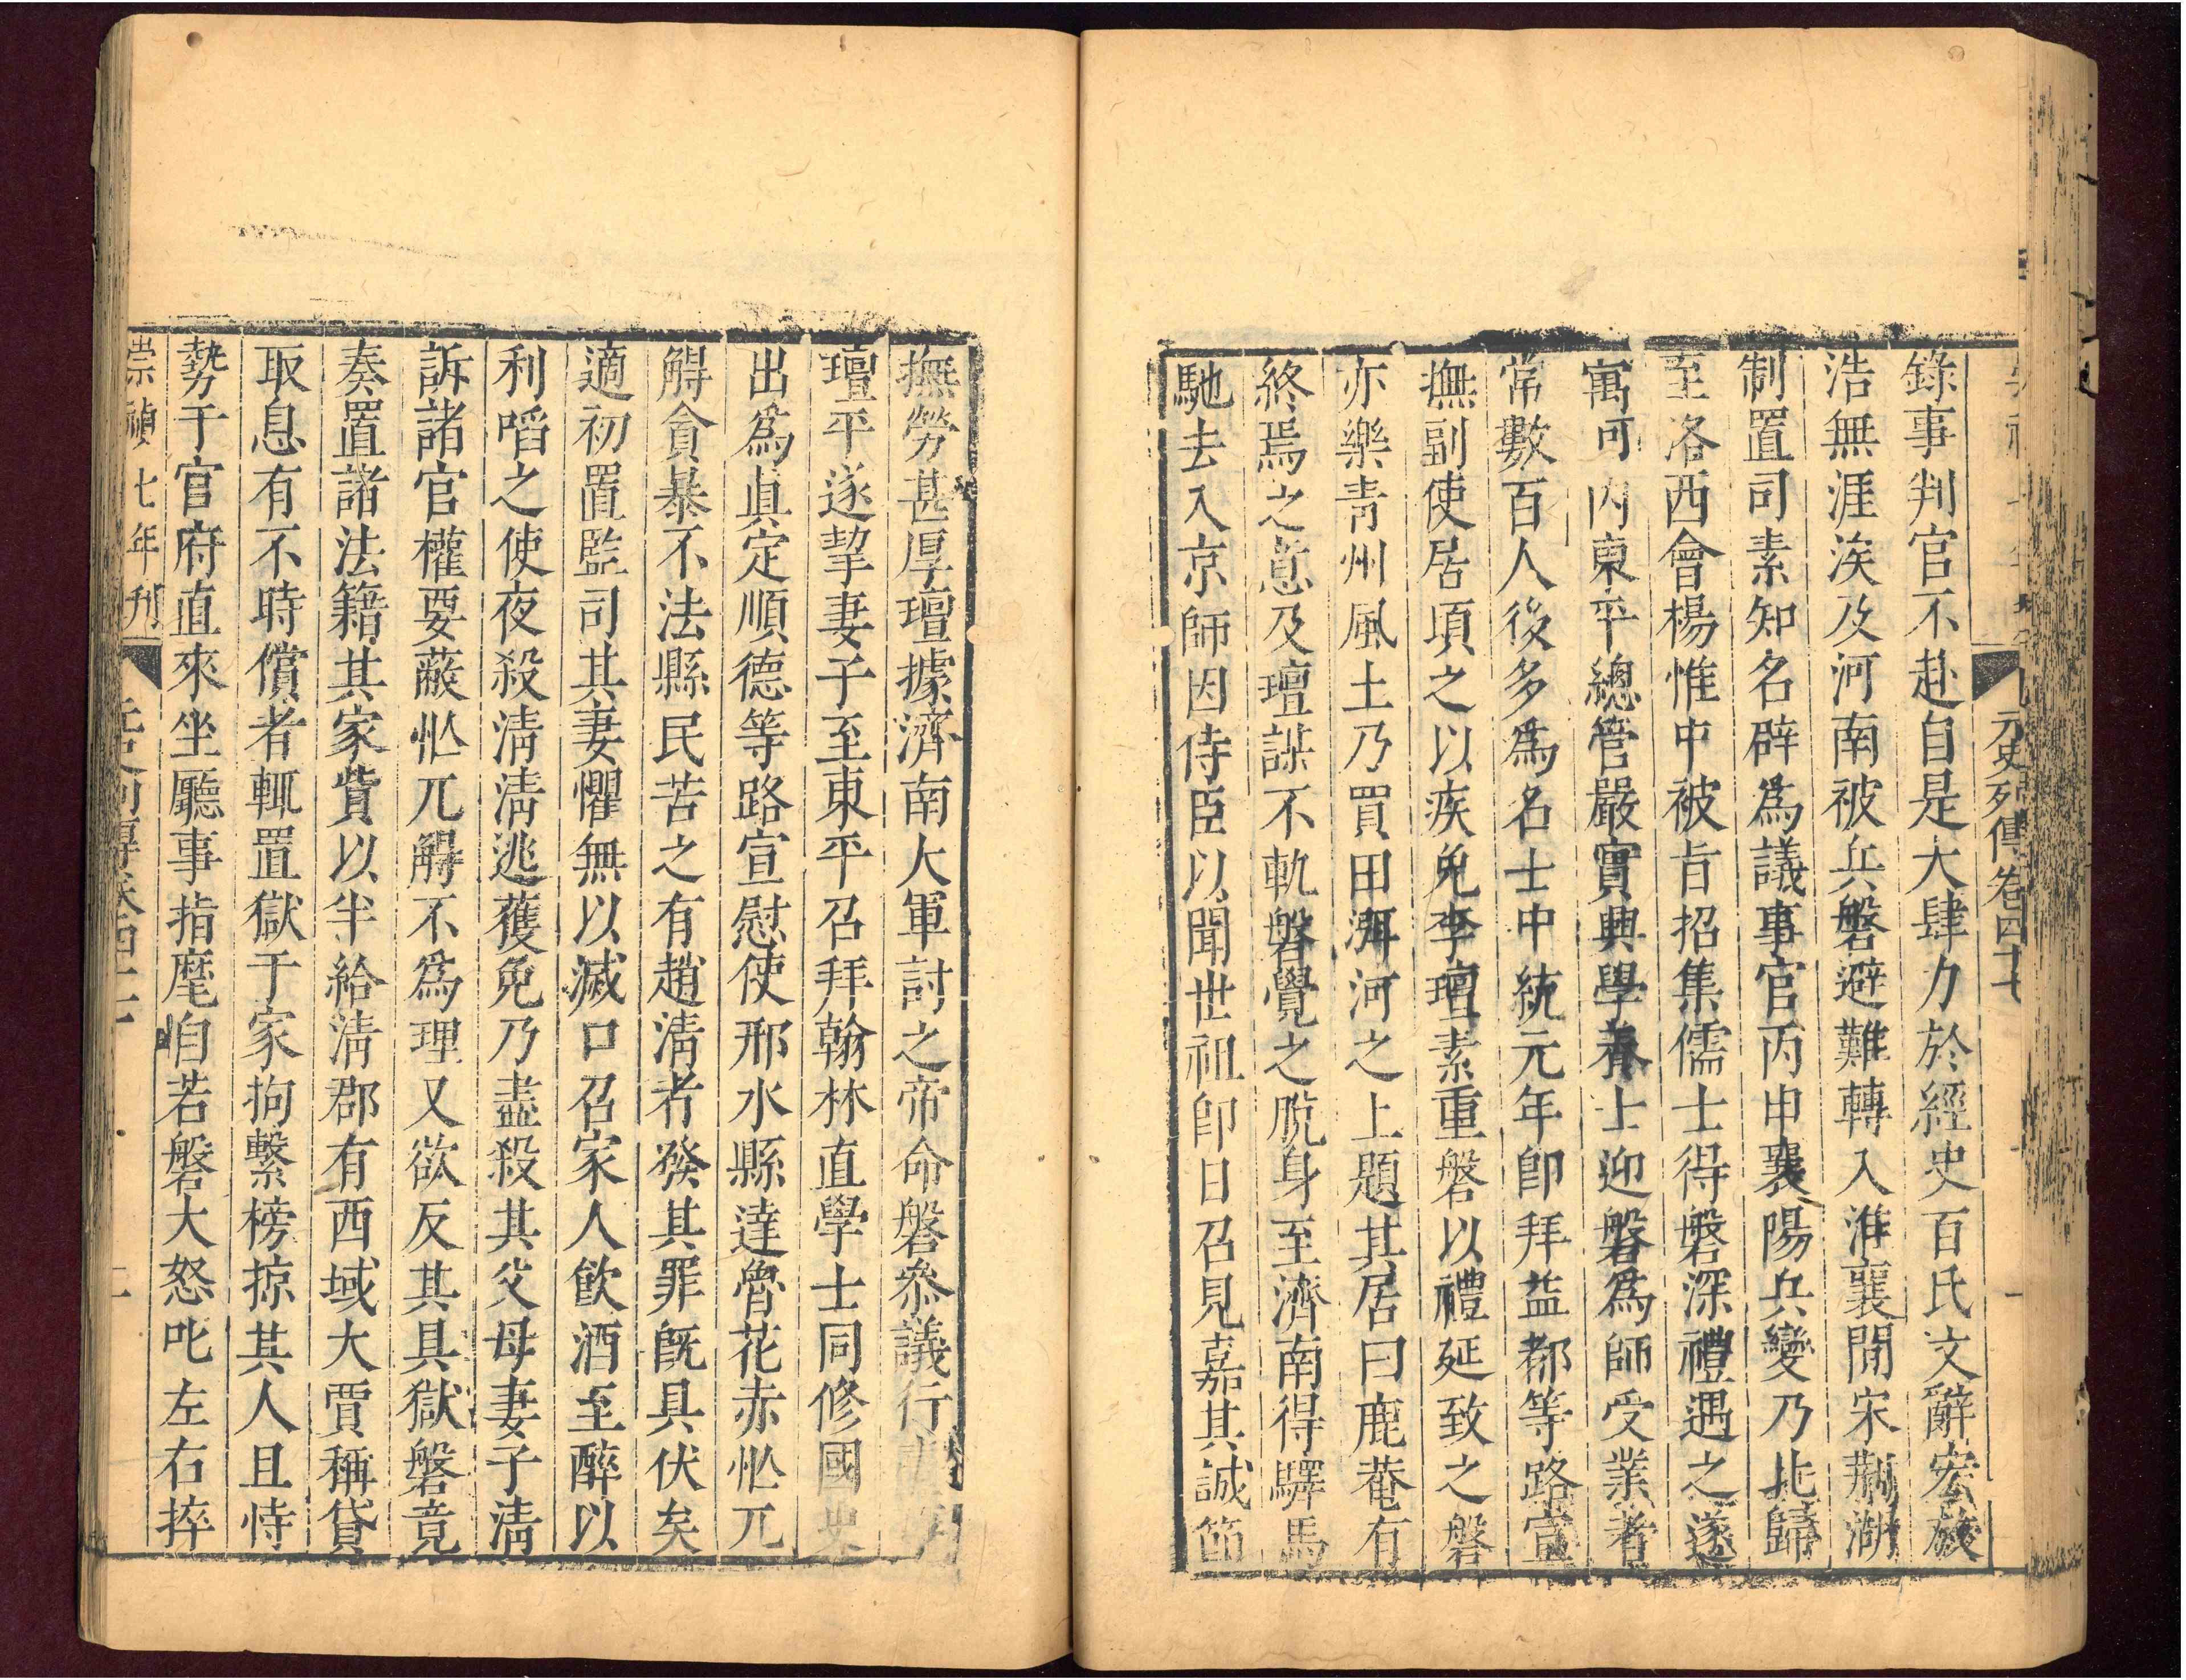 元史列傳卷四十七
錄事判官不赴自是大肆力於經史百氏文辭宏放
浩無涯涘及河南被兵磐避難轉入淮襄間宋荊湖
制置司素知名辟爲議事官丙申襄陽兵變乃北歸
至洛西會楊惟中被旨招集儒士得磐深禮遇之遂
寓河內東平總管嚴實興學養士迎磐爲師受業者
常數百人後多爲名士中統元年卽拜益都等路宣
撫副使居頃之以疾免李璮素重磐以禮延致之磐
亦樂靑州風土乃買田渳河之上題其居曰鹿菴有
終焉之意及璮謀不軌磐覺之脫身至濟南得驛馬
馳去入京師因侍臣以聞世祖卽日召見嘉其誠節
撫勞甚厚璮據濟南大軍討之帝命磐叅議行
璮平遂挈妻子至東平召拜翰林直學士同修國史
出爲眞定順德等路宣慰使邢水縣達魯花赤忙兀
䚟貪暴不法縣民苦之有趙淸者發其罪旣具伏矣
適初置監司其妻懼無以滅口召家人飮酒至醉以
利啗之使夜殺淸淸逃獲免乃盡殺其父母妻子淸
訴諸官權要蔽忙兀䚟不爲理又欲反其具獄磐竟
奏置諸法籍其家貲以半給淸郡有西域大賈稱貸
取息有不時償者輒置獄于家拘繫榜掠其人且恃
勢于官府直來坐廳事指麾自若磐大怒叱左右捽
崇禎七年刊 元史列傳卷四十七 二